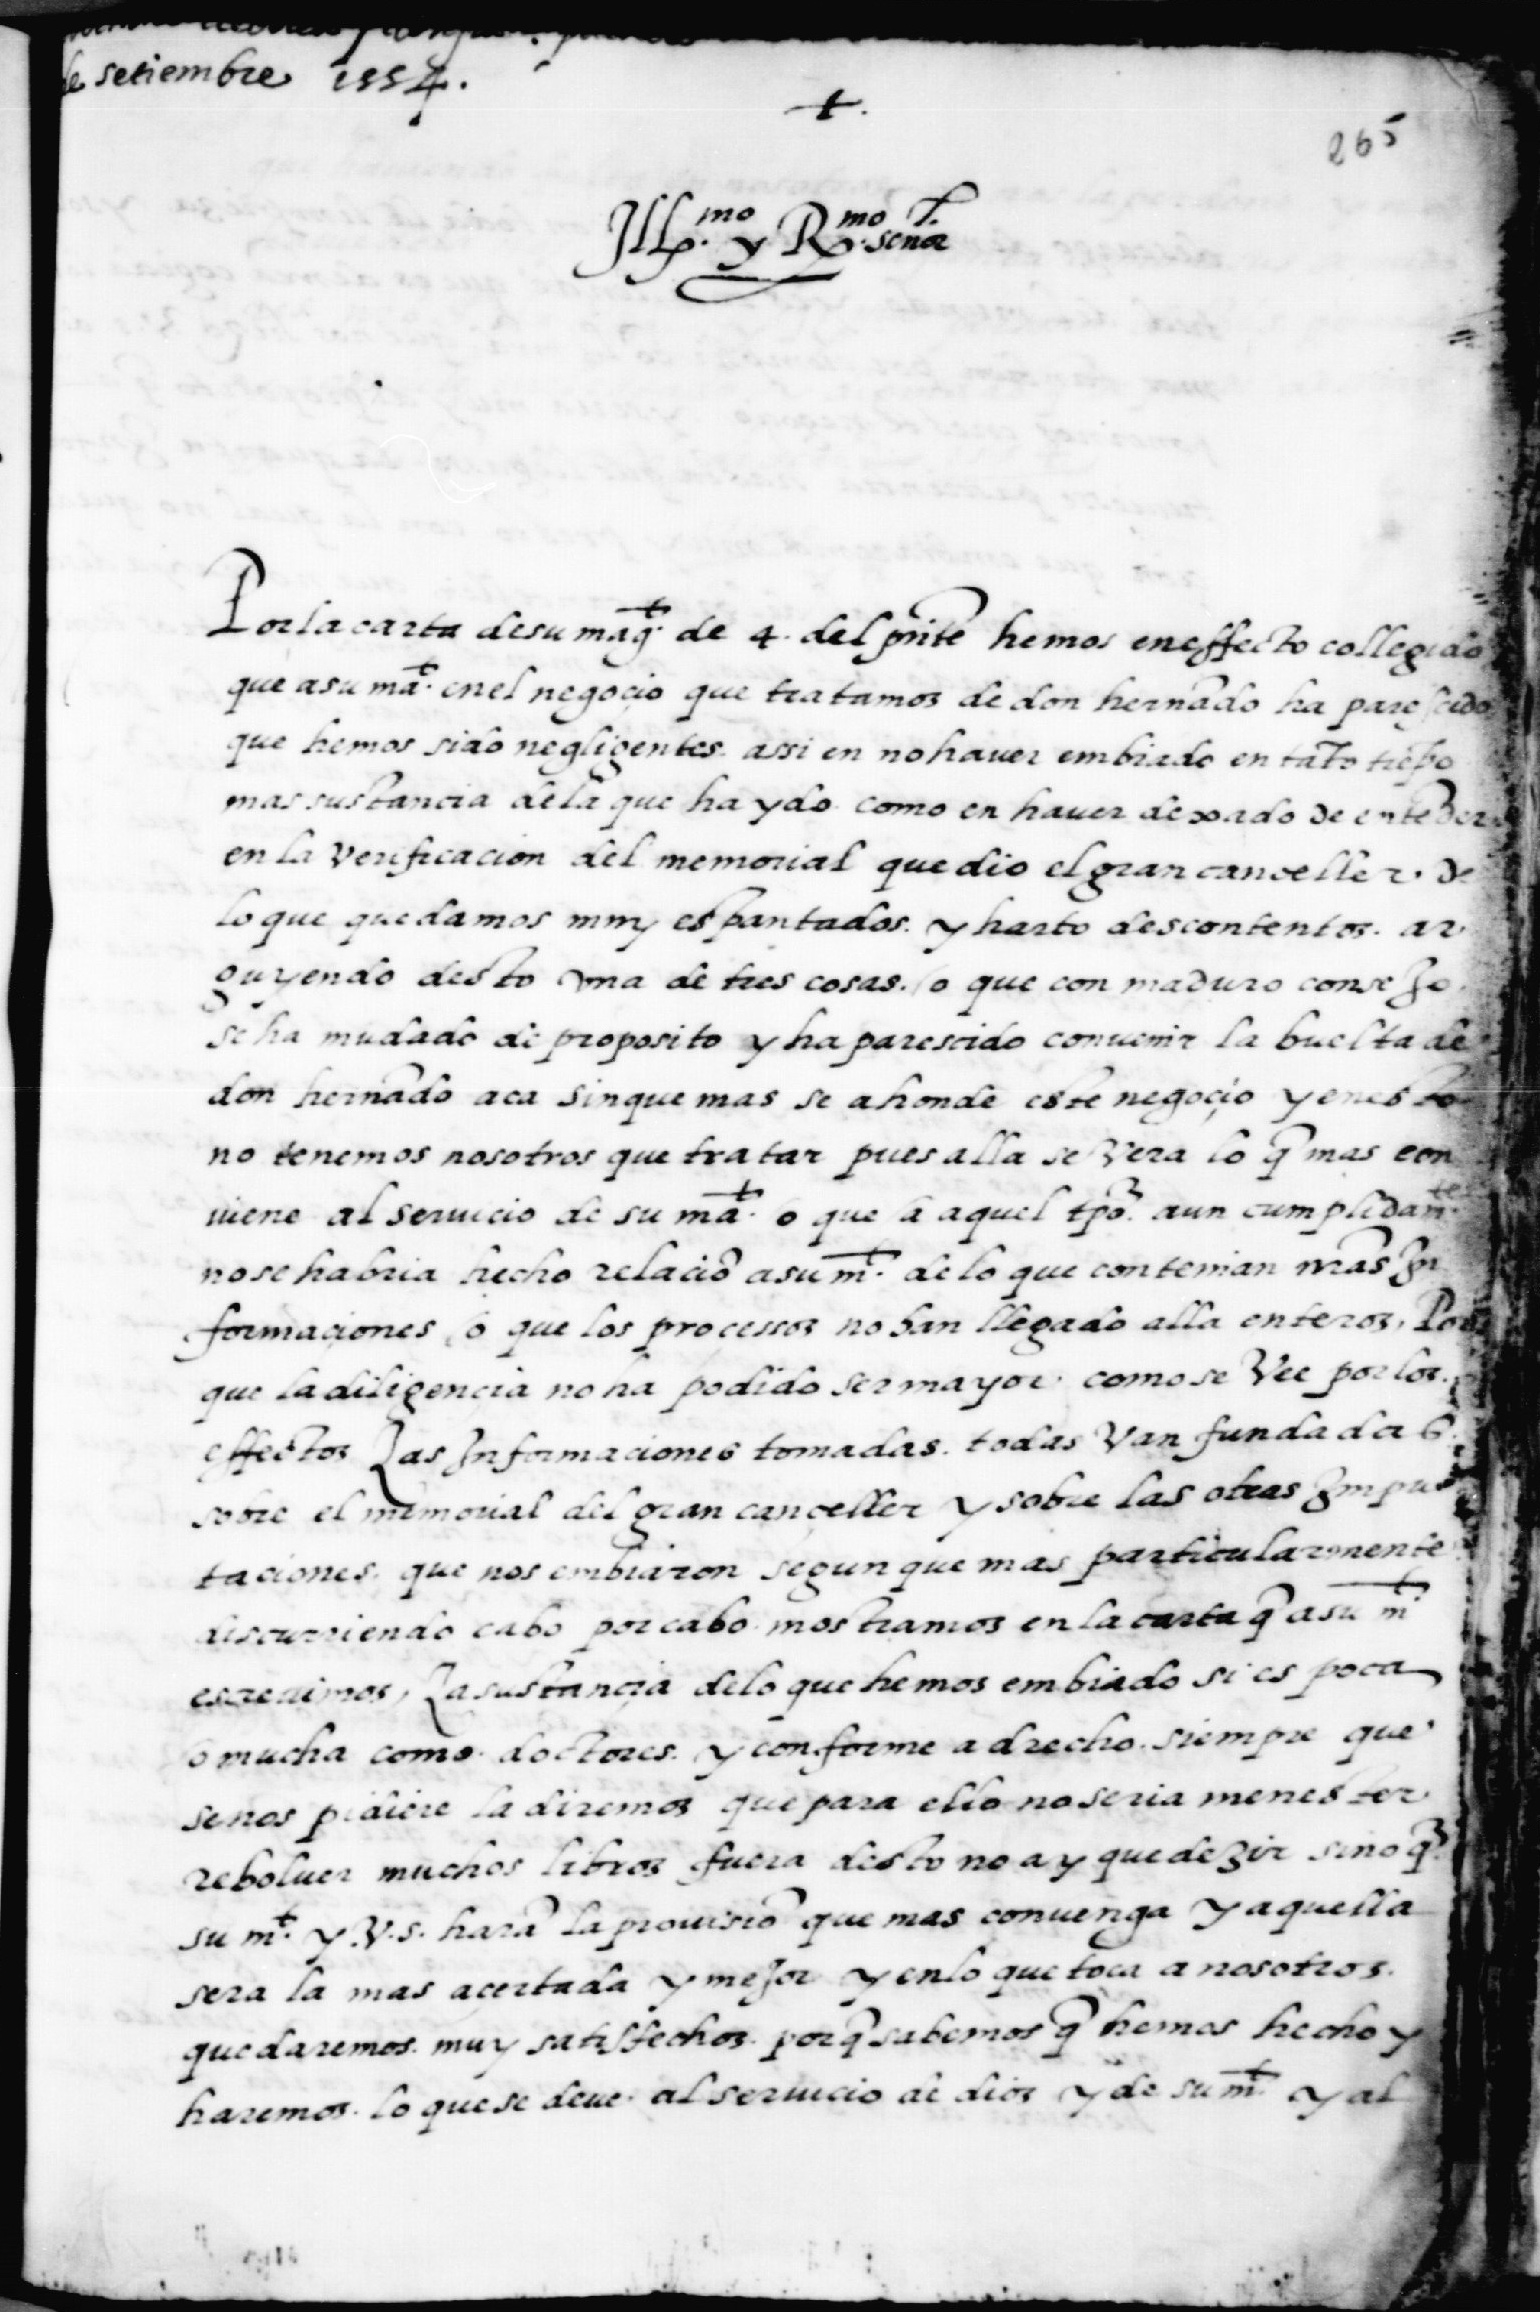 de setiembre 1554.
+.
265
Ill.mo y R.mo señor
Por la carta de su mag.t de 4. del pñte hemos en effecto collegido
que a su ma.t en el negocio que tratamos de don hernãdo ha parescido
que hemos sido negligentes. assi en no haver embiado en tãto tiẽpo
mas sustancia de la que ha ydo como en haver dexado de entẽder
en la verificacion del memorial que dio el gran canceller. De
lo que quedamos muy espantados. y harto descontentos. ar
guyendo desto vna de tres cosas. o que con maduro consejo.
se ha mudado de proposito y ha parescido convenir la buelta de
don hernãdo aca sin que mas se ahonde este negoçio y en esto
no tenemos nosotros que tratar pues alla se vera lo q̃ mas con
viene al servicio de su ma.t o que a aquel tp̃o. aun cumplidam.te
no se habria hecho relaciõ a su m.t de lo que contenian nr̃as In
formaçiones, o que los processos no han llegado alla enteros, Por
que la diligençia no ha podido ser mayor como se vee por los.
effectos Las Informaciones tomadas. todas van fundadas.
sobre el memorial del gran cançeller y sobre las otras Impu
taciones. que nos embiaron segun que mas particularmente
discurriendo cabo por cabo mostramos en la carta q̃ a su m.t
escrevimos, La sustançia de lo que hemos embiado si es poca
o mucha como doctores. y conforme a drecho. siempre que
se nos pidiere la diremos que para ello no seria menester
rebolver muchos libros fuera desto no ay que dezir sino q̃
su m.t y V.S. harã la provisiõ que mas convenga y aquella
sera la mas açertada y mejor y en lo que toca a nosotros.
quedaremos. muy satisfechos. porq̃ sabemos q̃ hemos hecho y
haremos. lo que se deve al servicio de dios y de su m.t y al